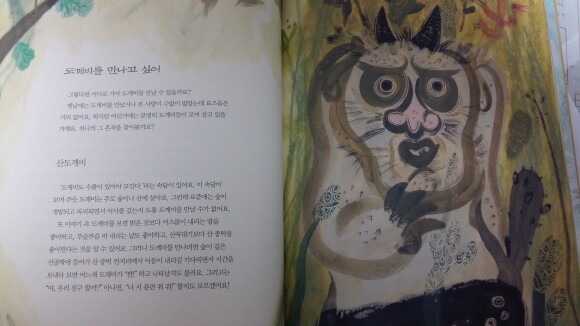 도깨비를 만나고 싶어
그렇다면 어디로 가야 도깨비를 만날 수 있을까요?
옛날에는 도깨비를 만났거나 본 사람이 수없이 많았는데 요즈음은
거의 없어요. 하지만 어딘가에는 분명히 도깨비들이 모여 살고 있을
거예요. 하나씩 그 흔적을 찾아볼까요?
산도깨비
'도깨비도 수풀이 있어야 모인다'라는 속담이 있어요. 이 속담을
보면 주로 도깨비는 주로 숲이나 산에 살아요. 그런데 요즘에는 숲이
개발되고 파괴되면서 이사를 갔는지 도통 도깨비를 만날 수가 없어요.
또 이야기 속 도깨비를 보면 맑은 것보다 이슬비가 내리는 밤을
좋아하고, 부슬부슬 비 내리는 날도 좋아하고, 산꼭대기보다 산 중턱을
좋아한다는 것을 알 수 있어요. 그러니 도깨비를 만나려면 숲이 깊은
산골짝에 들어가 산 중턱 언저리에서 어둠이 내리길 기다리면서 시간을
보내다 보면 어느새 도깨비가 "짠!" 하고 나타날지도 몰라요. 그러고는
"야, 우리 친구 할까?" 아니면, "나 서 푼만 꿔 줘!" 할지도 모르겠어요!